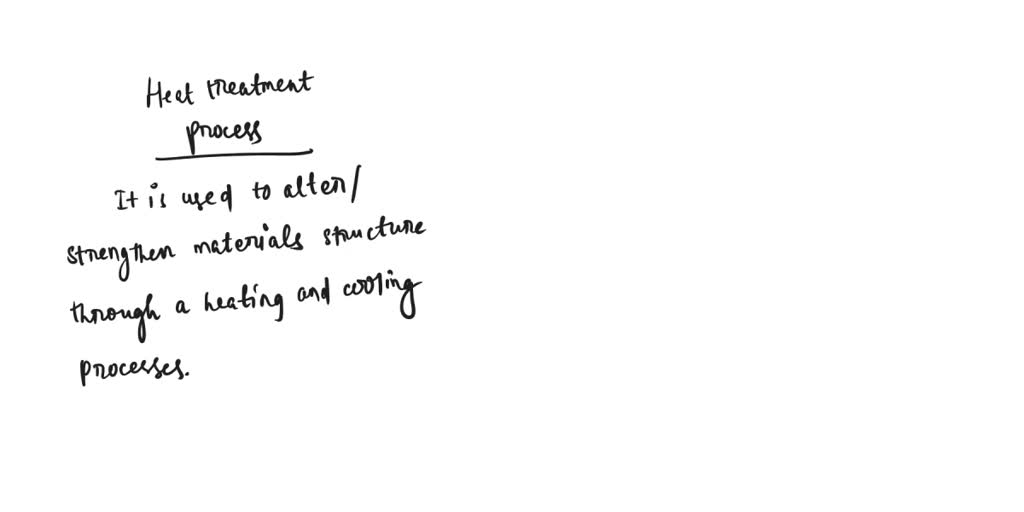 Heat treatment
process
It is used to alter/
strengthen materials structure
through a heating and cooling
processes.